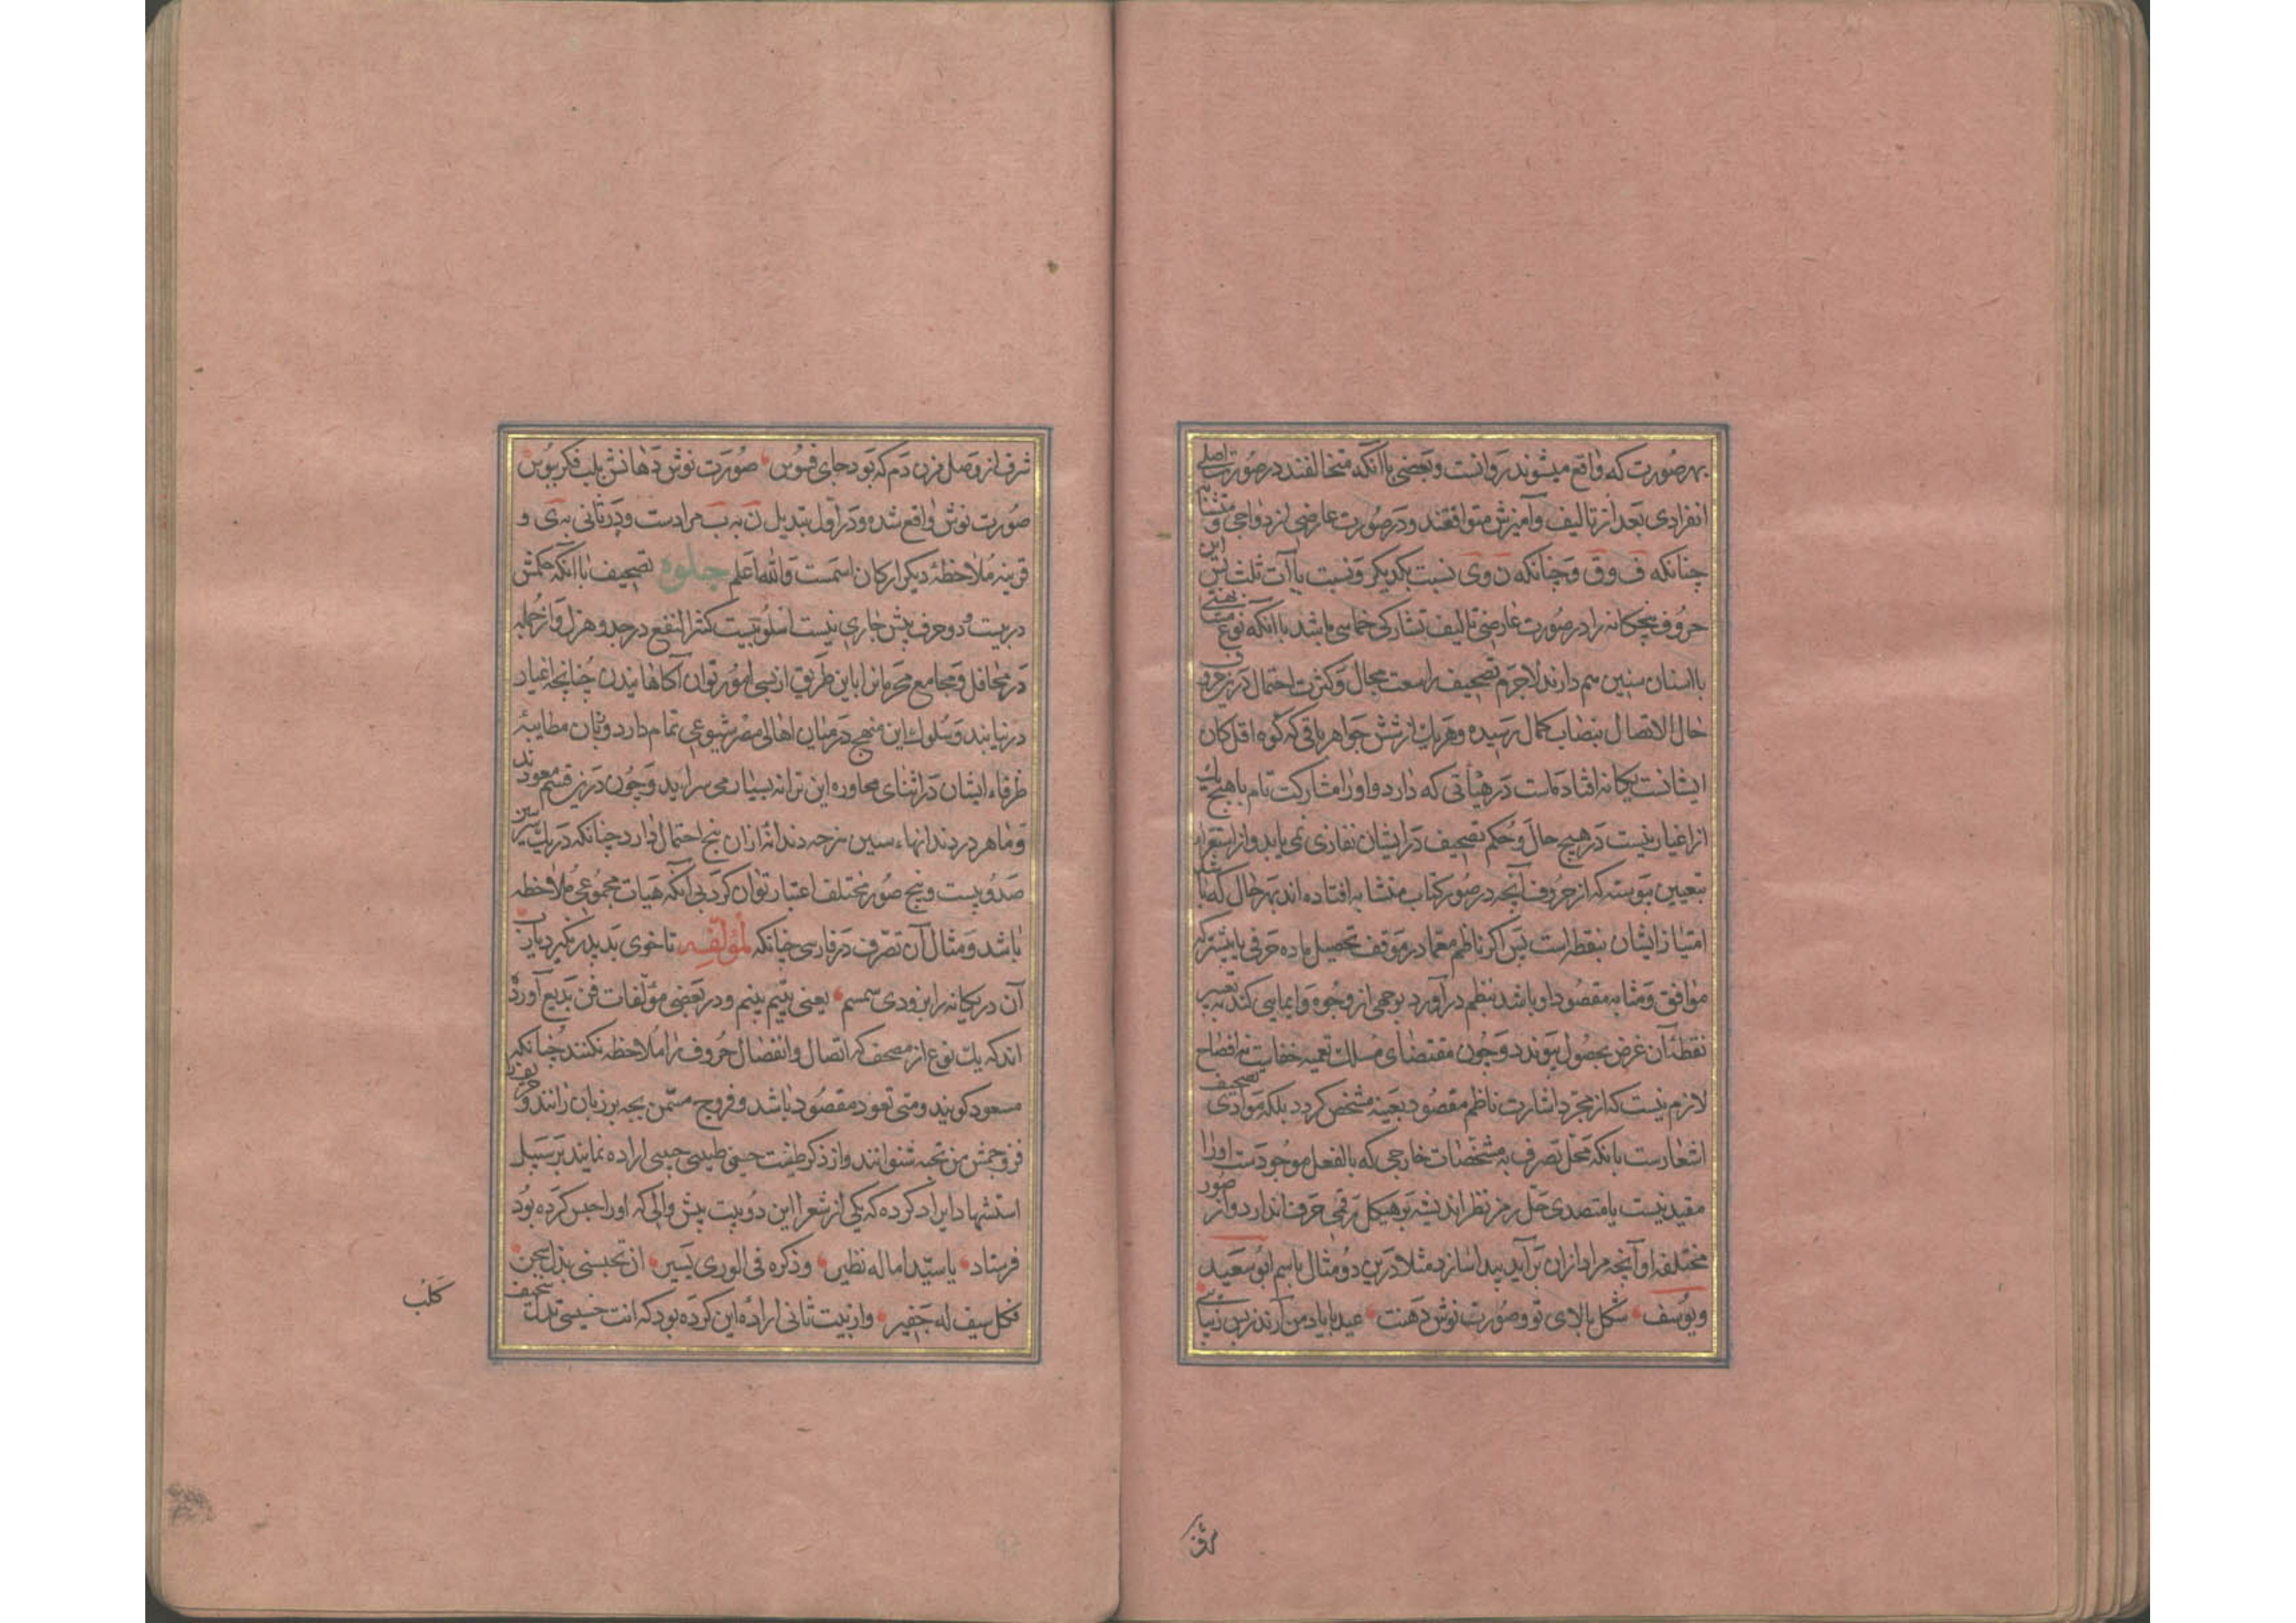 بهر صورت که واقع میشوند رواست و بعضی باآنکه متخالفند در صورت اصلی
انفرادی بعد از تالیف و آمیزش متوافقند و در صورت عارضی ازدواجی متشابه و
چنانکه ف و ق و چنانکه ن و ی نسبت بکدیکر و نسبت با آت ثلث پس این
حروف پنجکانه را در صورت عارضی تالیف تشارکی خماسی باشد باآنکه نوع
بااسنان سین هم دارند لاجرم تصحیف را سعت مجال و کثرت احتمال درین حروف
حال الاتصال بنصاب کمال رسیده و هر یک از شش جواهر باقی که کوه اقل کان
ایشانست یکانه افتادست در هیأتی که دارد و او را مشارکت تام با هیچ یک
از اغیار نیست در هیچ حال و حکم تصحیف در ایشان نفاذی نمی یابد و از استقراء
بتعیین پیوسته که از حروف آنچه در صور کتاب متشابه افتاده اند بهر حال که باشد
امتیاز ایشان بنقطه است پس اکر ناظم معما در موقف تحصیل ماده حرفی یا بیشتر که
موافق و مشابه مقصود او باشد بنظم درآورد بوجهی از وجوه و ایمایی کند به تغییر
نقطه آن غرض بحصول پیوندد و چون مقتضای مسلک تعمیه خفاست نه افصاح
لازم نیست که از مجرد اشارت ناظم مقصود بعینه مشخص کردد بلکه مؤادی تصحیف
اشعارست بانکه محل تصرف به مشخصات خارجی که بالفعل موجودست او را
مقید نیست یا متصدی حل رمز نظر اندیشه بر هیکل رقمی حرف اندازد و از صور
مختلفه او آنچه مراد ازان برآید پیدا سازد مثلا درین دو مثال باسم ابو سعید
و یوسف شکل بالای تو و صورت نوش دهنت عید با یاد من آرند زیس زیبایی
شرف از وصل مزن دم که بود جای فسوس صورت نوش دهانش بلب فکر ببوس
صورت نوش واقع شده و در اول تبدیل ن به ب مرادست و در ثانی به ی و
قرینه ملاحظه دیکر ارکان اسمست والله اعلم جلوه تصحیف باآنکه حکمش
در بیست و دو حرف پیش جاری نیست اسلوبیست کثیر النفع در جد و هزل و از جمله
در محافل و مجامع محرمانرا باین طریق از بسی امور توان آکاهانیدن چنانچه اغیار
درنیابند و سلوک این منهج در میان اهالی مصر شیوعی تمام دارد و زبان مطایبه
ظرفاء ایشان در اثنای محاوره این ترانه بسیار می سراید و چون درین قسم معودند
و ماهر در دندانهاء سین هر چه دندانه ازان پنج احتمال دارد چنانکه در یک سین
صد و بیست و پنج صور مختلف اعتبار توان کرد بی آنکه هیات مجموعی ملاحظه
باشد و مثال آن تصرف در فارسی چنانکه لمؤلفه تا خوی بد پدر نکیرد یارب
آن در یکانه را بزودی سمسم یعنی یتیم بینم و در بعضی مؤلفات فن بدیع آورده
اند که یک نوع از مصحف که اتصال و انفصال حروف را ملاحظه نکنند چنانکه
مسعود کویند و متی تعود مقصود باشد و فروج مسمن بجه بر زبان رانند و
فزوجمش من نحبه شنوانند و از ذکر طیفت حیفی طبیبی حبیبی اراده نمایند بر سبیل
استشهاد ایراد کرده که یکی از شعرا این دو بیت پیش والی که او را حبس کرده بود
فرستاد یا سیدا ما له نظیر و ذکره فی الوری یسیر ان تحبسنی بذل سجن
فکل سیف له جفیر و از بیت ثانی اراده این کرده بود که انت خسیس بذل تصحیف
کلب